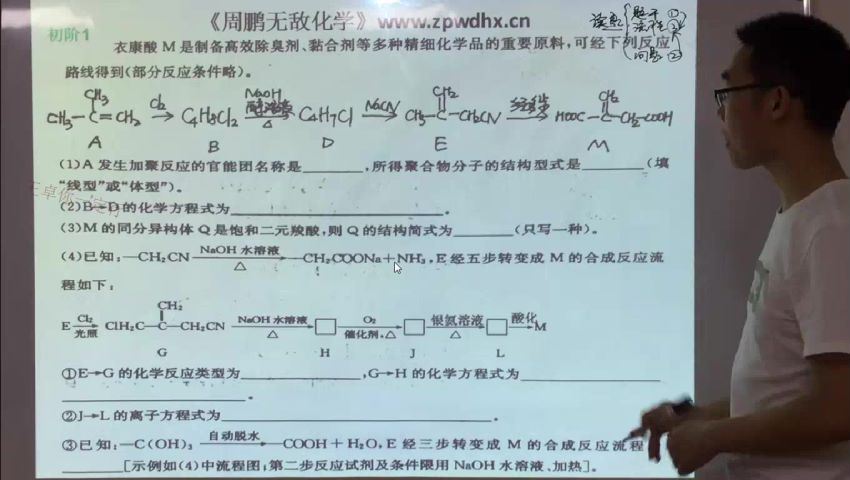 《周鹏无敌化学》www.zpwdhx.cn
读题
题干①
流程②
问题②
初阶1
衣康酸M是制备高效除臭剂、黏合剂等多种精细化学品的重要原料,可经下列反应
路线得到(部分反应条件略)。
CH₃ CH₂ CH₂
CH₃—C=CH₂ Cl₂→ C₄H₈Cl₂ NaOH △→ C₄H₇Cl NaCN→ CH₃—C—CH₂CN → HOOC—C—CH₂—COOH
A B D E M
(1)A发生加聚反应的官能团名称是______,所得聚合物分子的结构型式是______(填
“线型”或“体型”)。
(2)B→D的化学方程式为______。
(3)M的同分异构体Q是饱和二元羧酸,则Q的结构简式为______(只写一种)。
(4)已知:—CH₂CN NaOH水溶液 △→ —CH₂COONa+NH₃,E经五步转变成M的合成反应流
程如下:
CH₂
E Cl₂ 光照→ ClH₂C—C—CH₂CN NaOH水溶液 △→ □ O₂ 催化剂,△→ □ 银氨溶液 △→ □ 酸化→M
G H J L
①E→G的化学反应类型为______,G→H的化学方程式为______
______。
②J→L的离子方程式为______。
③已知:—C(OH)₃ 自动脱水→ —COOH+H₂O,E经三步转变成M的合成反应流程
______[示例如(4)中流程图;第二步反应试剂及条件限用NaOH水溶液、加热]。